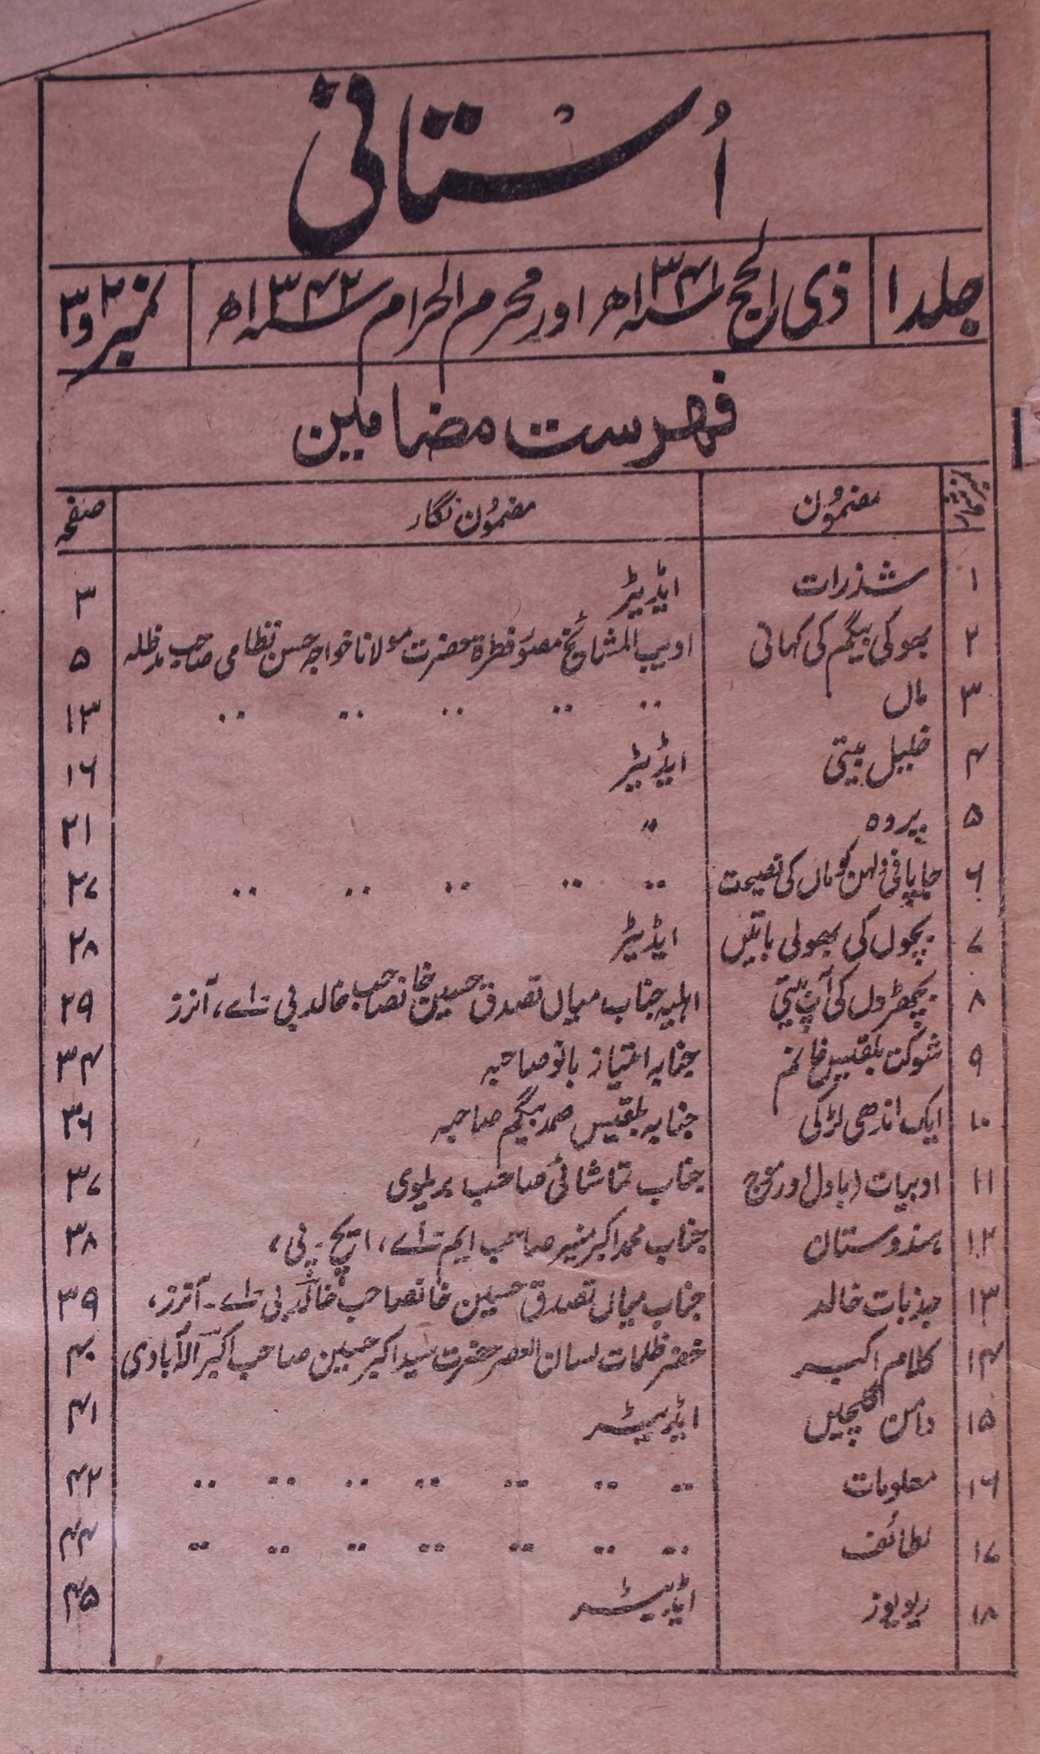 اُستانی
جلد ۱ ذی الحج سنہ ۱۳۴۱ھ اور محرم الحرام سنہ ۱۳۴۲ھ نمبر ۲ و ۳
فہرست مضامین
نمبر شمار مضمُون مضمُون نگار صفحہ
۱ شذرات ایڈیٹر ۳
۲ بھوکی بیگم کی کہانی ادیب المشائخ مصور فطرۃ حضرت مولانا خواجہ حسن نظامی صاحب مدظلہ ۵
۳ ماں ۱۳
۴ خلیل بیتی ایڈیٹر ۱۶
۵ پردہ " ۲۱
۶ جاپانی دلہن کو ماں کی نصیحت ۲۷
۷ بچوں کی بھولی باتیں ایڈیٹر ۲۸
۸ بچھڑوں کی آپ بیتی اہلیہ جناب میاں تصدق حسین خانصاحب خالد بی اے، آنرز ۲۹
۹ شوکت بلقیس خانم جنابہ امتیاز بانو صاحبہ ۳۴
۱۰ ایک اندھی لڑکی جنابہ بلقیس صمد بیگم صاحبہ ۳۶
۱۱ ادبیات (بادل اور موج جناب تماشائی صاحب بریلوی ۳۷
۱۲ ہندوستان جناب محمد اکبر منیر صاحب ایم اے، ایچ۔ پی، ۳۸
۱۳ جذبات خالد جناب میاں تصدق حسین خانصاحب خالد بی اے۔ آنرز، ۳۹
۱۴ کلام اکبر خضر ظلمات لسان العصر حضرت سید اکبر حسین صاحب اکبر الہ آبادی ۴۰
۱۵ دامن گلچیں ایڈیٹر ۴۱
۱۶ معلومات ۴۲
۱۷ لطائف ۴۴
۱۸ ریویوز ایڈیٹر ۴۵